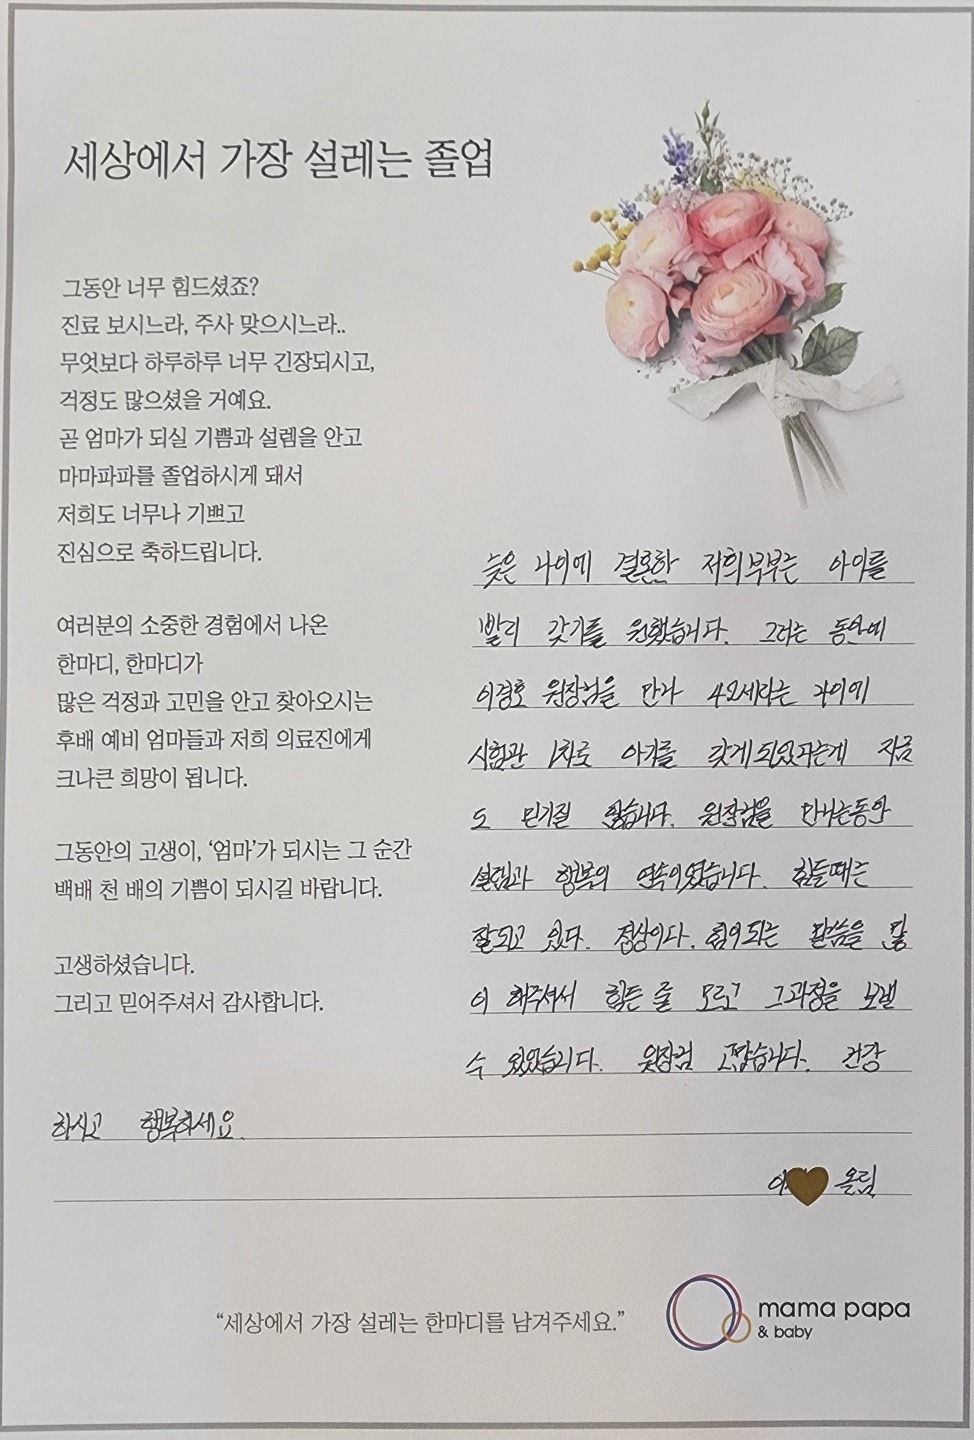 세상에서 가장 설레는 졸업
그동안 너무 힘드셨죠?
진료 보시느라, 주사 맞으시느라..
무엇보다 하루하루 너무 긴장되시고,
걱정도 많으셨을 거예요.
곧 엄마가 되실 기쁨과 설렘을 안고
마마파파를 졸업하시게 돼서
저희도 너무나 기쁘고
진심으로 축하드립니다.
여러분의 소중한 경험에서 나온
한마디, 한마디가
많은 걱정과 고민을 안고 찾아오시는
후배 예비 엄마들과 저희 의료진에게
크나큰 희망이 됩니다.
그동안의 고생이, ‘엄마’가 되시는 그 순간
백배 천 배의 기쁨이 되시길 바랍니다.
고생하셨습니다.
그리고 믿어주셔서 감사합니다.
늦은 나이에 결혼한 저희부부는 아이를
빨리 갖기를 원했습니다. 그러는 동안에
이경호 원장님을 만나 42세라는 나이에
시험관 1차로 아기를 갖게되었다는게 지금
도 믿기질 않습니다. 원장님을 만나는동안
설렘과 행복의 연속이었습니다. 힘들때는
잘되고 있다. 정상이다. 힘이되는 말씀을 많
이 해주셔서 힘든 줄 모르고 그과정을 보낼
수 있었습니다. 원장님 고맙습니다. 건강
하시고 행복하세요.
이 올림
“세상에서 가장 설레는 한마디를 남겨주세요.”
mama papa
& baby